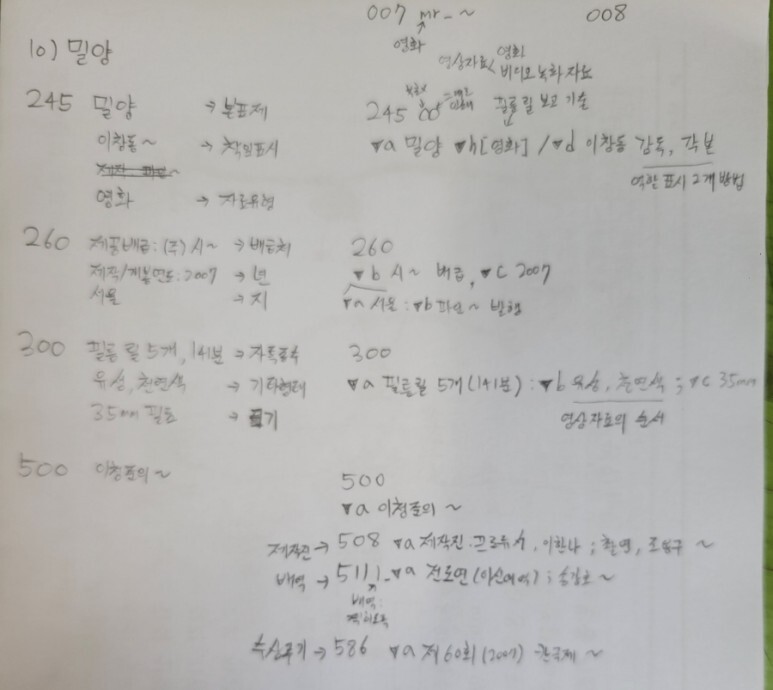 007 mr_~ 008
영화
영상자료< 영화
비디오 녹화자료
10) 밀양
245 밀양 → 본표제
245 00 필름릴 보고 기술
이창동~ → 책임표시
▼a 밀양 ▼h[영화] / ▼d 이창동 감독, 각본
역할 표시 2개 방법
영화 → 자료유형
260 제공배급: (주) A~ → 배급처
260
제작/개봉연도: 2007 → 년
▼b A~ 배급, ▼c 2007
서울 → 지
▼a 서울 : ▼b 파인~ 발행
300 필름 릴 5개, 141분 → 자특수
300
유성, 천연색 → 기타형태
▼a 필름릴 5개(141분) : ▼b 유성, 천연색 ; ▼c 35mm
35mm 필름 → 크기
영상자료의 순서
500 이청준의~
500
▼a 이청준의 ~
제작진→ 508 ▼a 제작진: 프로듀서, 이한나 ; 촬영, 조용규 ~
배역 → 5111_ ▼a 전도연(이신애 역) ; 송강호~
배역:
수상주기→ 586 ▼a 제60회(2007) 칸국제 ~